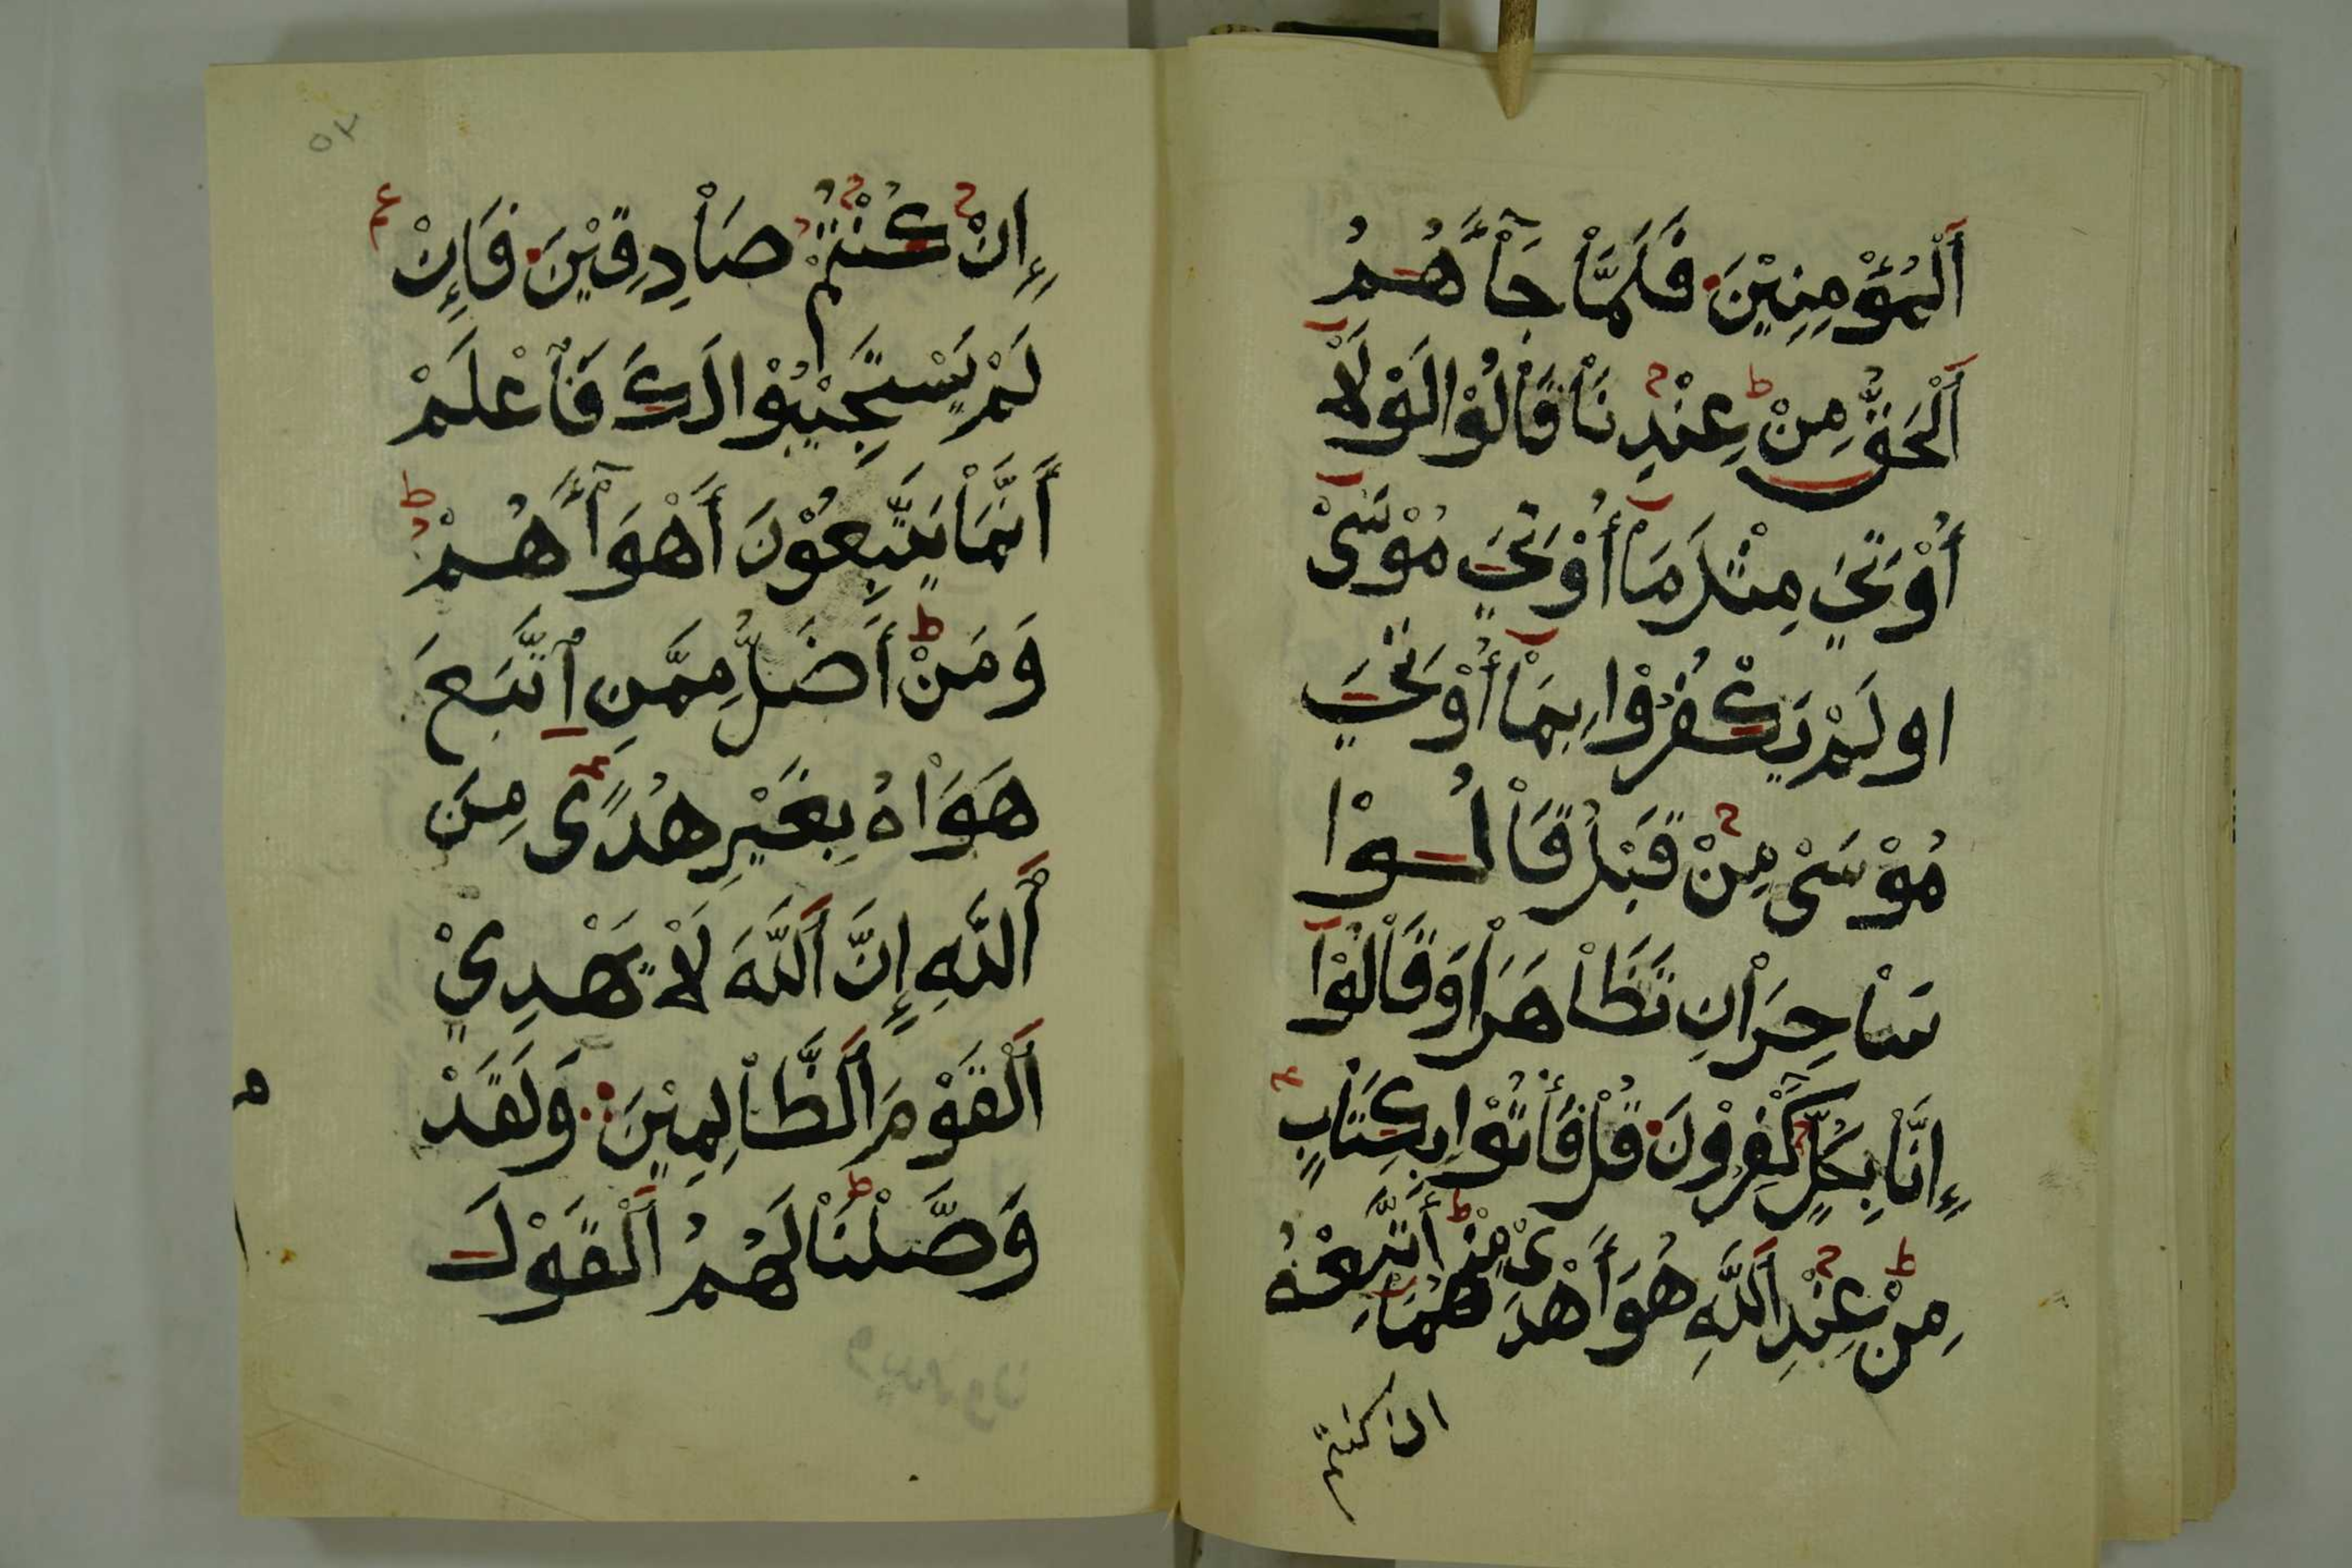 اَلْمُؤْمِنِيْنَ فَلَمَّاْ جَاْۤءَهُمُ
اَلْحَقُّ مِنْ عِنْدِنَاْ قَاْلُوْا لَوْلَاْ
أُوْتِيَ مِثْلَ مَاْ أُوْتِيَ مُوْسَىْ
اولَمْ يَكْفُرْوْا بِمَاْ أُوْتِيَ
مُوْسَىْ مِنْ قَبْلُ قَاْلُوْا
سَاْحِرَاْنِ تَظَاْهَرَاْ وَقَاْلُوْا
إِنَّاْ بِكُلٍّ كَٰفِرُوْنَ قُلْ فَأْتُوْا بِكِتَاْبٍ
مِنْ عِنْدِ اَللَّهِ هُوَ أَهْدَىْ مِنْهُمَاْ أَتَّبِعْهُ
ان كنتم
٥٢
إِنْ كُنْتُمْ صَاْدِقِيْنَ فَإِنْ
لَمْ يَسْتَجِيْبُوْا لَكَ فَاْعْلَمْ
أَنَّمَاْ يَتَّبِعُوْنَ أَهْوَاۤءَهُمْ
وَمَنْ أَضَلُّ مِمَّنِ اتَّبَعَ
هَوَاْهُ بِغَيْرِ هُدًى مِنَ
اَللَّهِ إِنَّ اَللَّهَ لَاْ يَهْدِيْ
اَلْقَوْمَ اَلظَّاْلِمِيْنَ وَلَقَدْ
وَصَّلْنَاْ لَهُمُ اَلْقَوْلَ